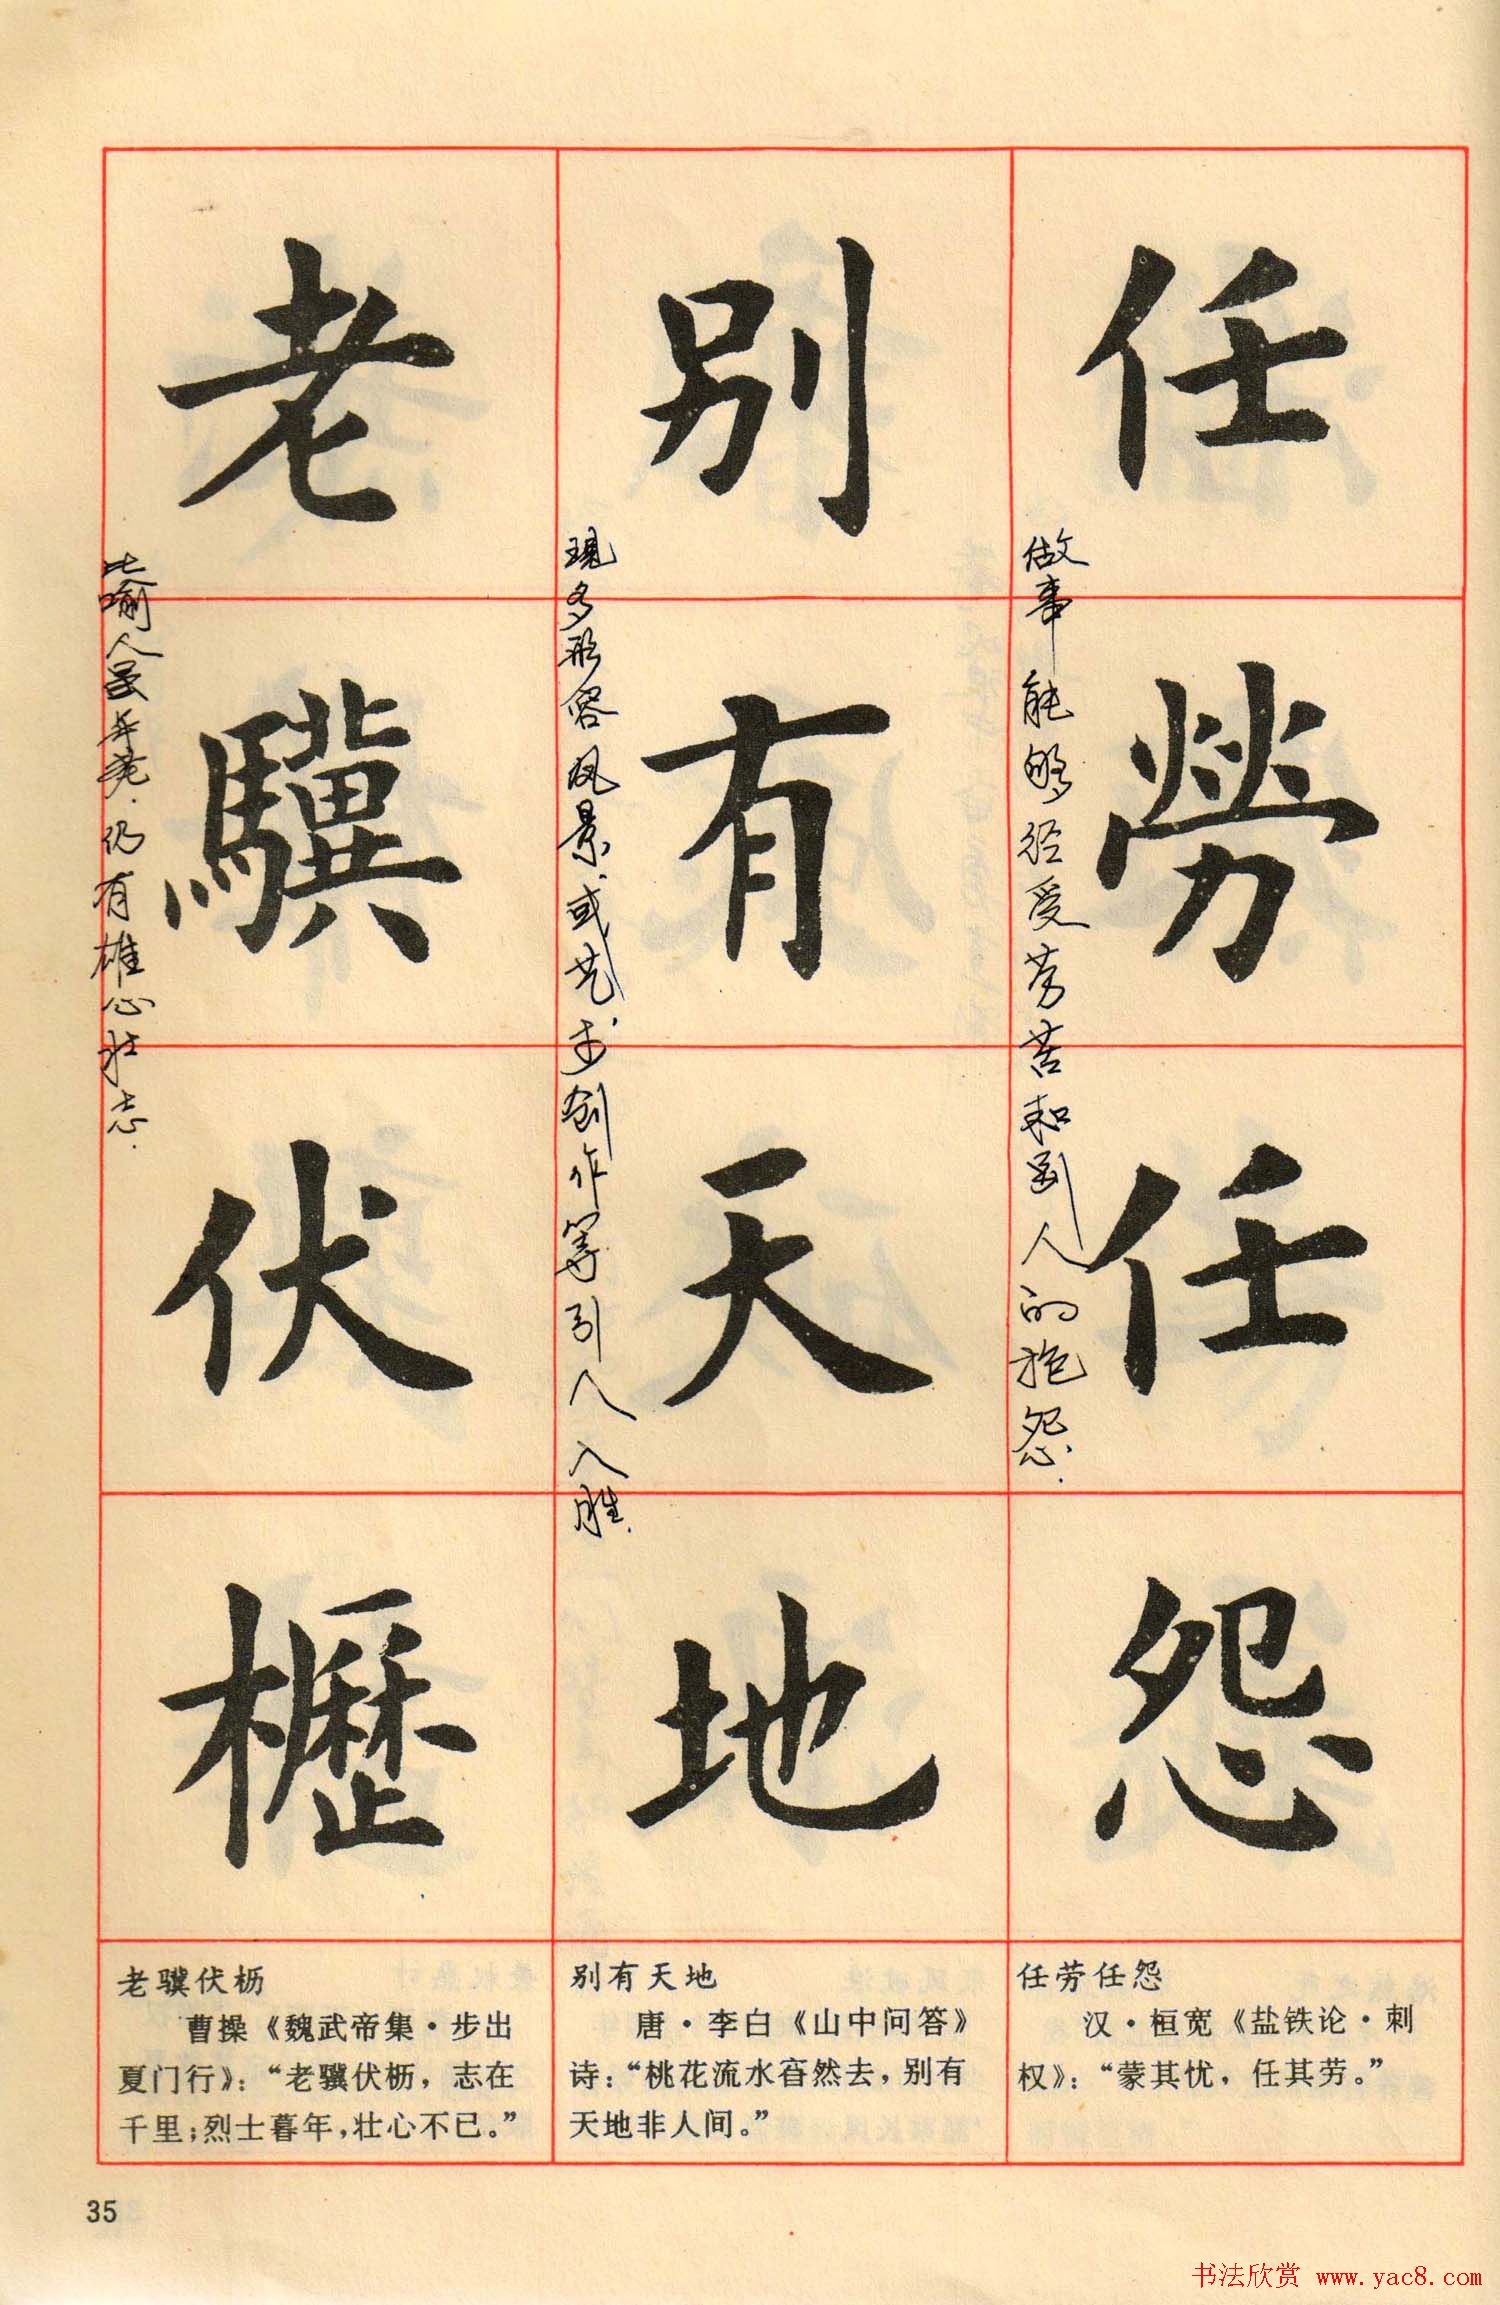 任劳任怨
做事能够经受劳苦和别人的抱怨.
别有天地
现多形容风景.或艺术创作等引人入胜.
老驥伏櫪
比喻人虽年老.仍有雄心壮志.
任劳任怨
汉·桓宽《盐铁论·刺
权》：“蒙其忧，任其劳。”
别有天地
唐·李白《山中问答》
诗：“桃花流水杳然去，别有
天地非人间。”
老骥伏枥
曹操《魏武帝集·步出
夏门行》：“老骥伏枥，志在
千里；烈士暮年，壮心不已。”
35
书法欣赏 www.yac8.com